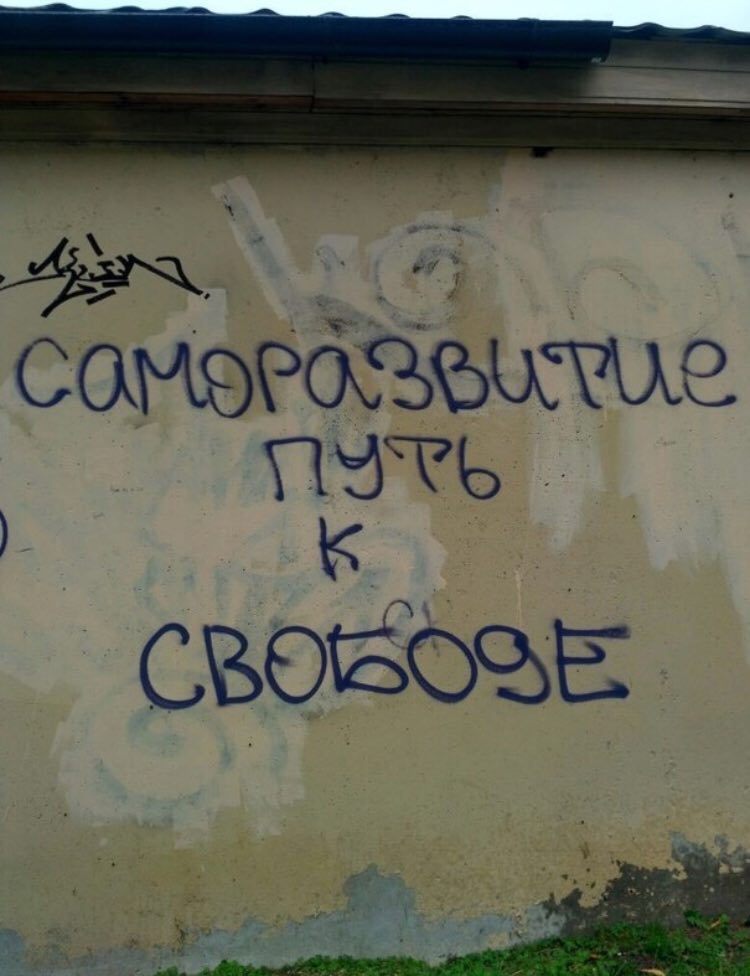 САМОРАЗВИТИЕ
ПУТЬ
К
СВОБОДЕ